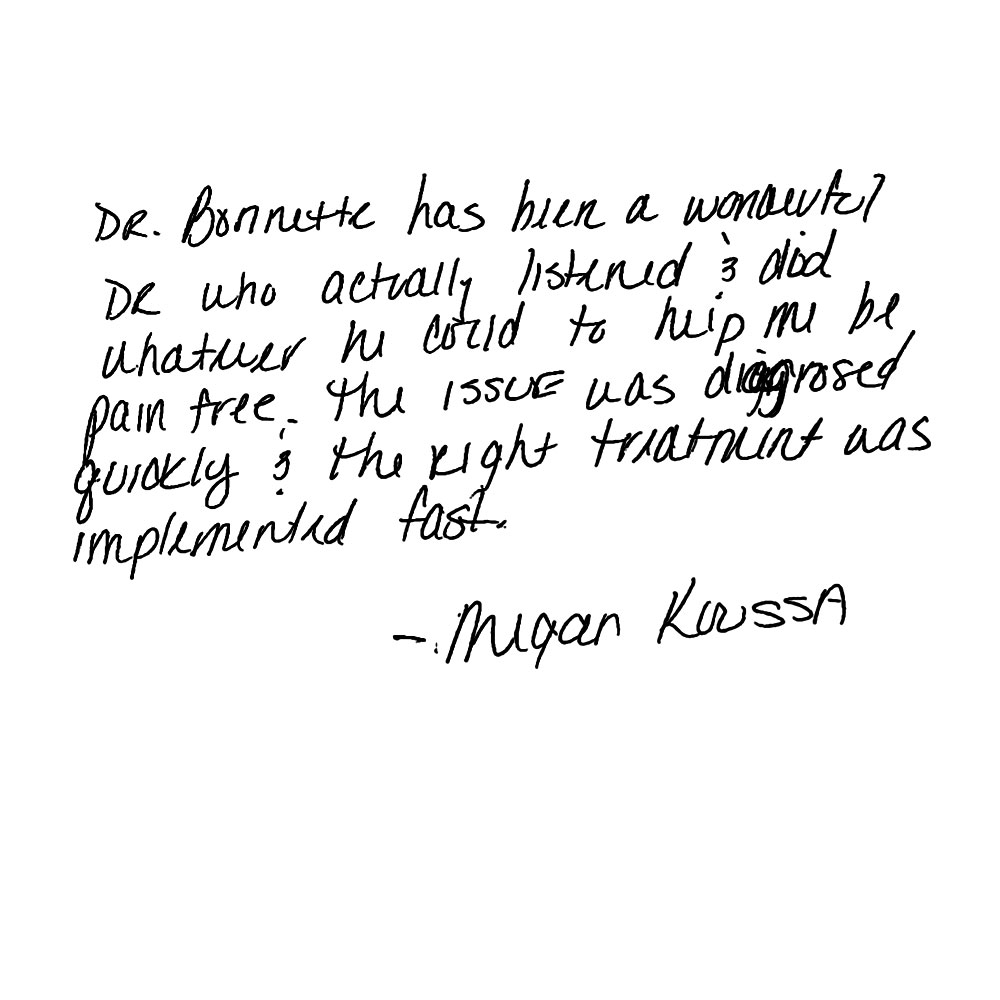 DR. Bonnette has been a wonderful
DR who actually listened & did
whatever he could to help me be
pain free. The issue was diagnosed
quickly & the right treatment was
implemented fast.
- Megan Koussa